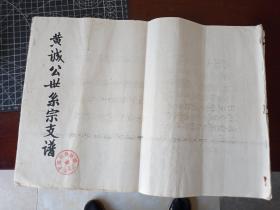 黄诚公世系宗支谱